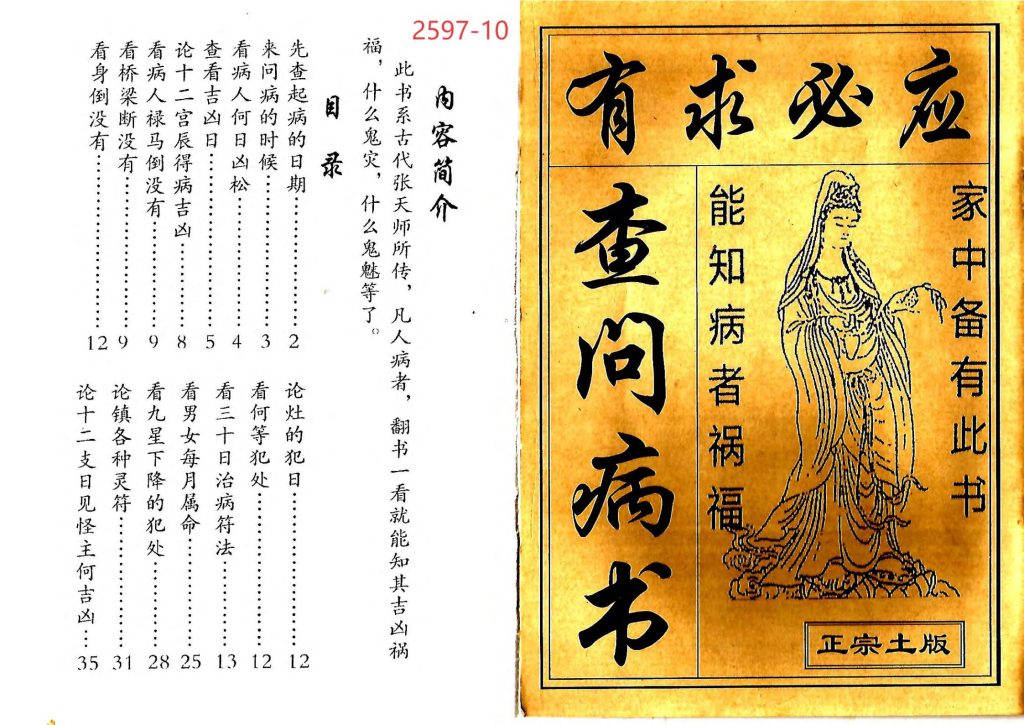 2597-10
有求必应
家中备有此书
能知病者祸福
查问病书
正宗土版
内容简介
此书系古代张天师所传，凡人病者，翻书一看就能知其吉凶祸
福，什么鬼灾，什么鬼魅等了。
目录
先查起病的日期……………2
来问病的时候……………3
看病人何日凶松……………4
查看吉凶日……………5
论十二宫辰得病吉凶……………8
看病人禄马倒没有……………9
看桥梁断没有……………9
看身倒没有……………12
论灶的犯日……………12
看何等犯处……………12
看三十日治病符法……………13
看男女每月属命……………25
看九星下降的犯处……………28
论镇各种灵符……………31
论十二支日见怪主何吉凶…35